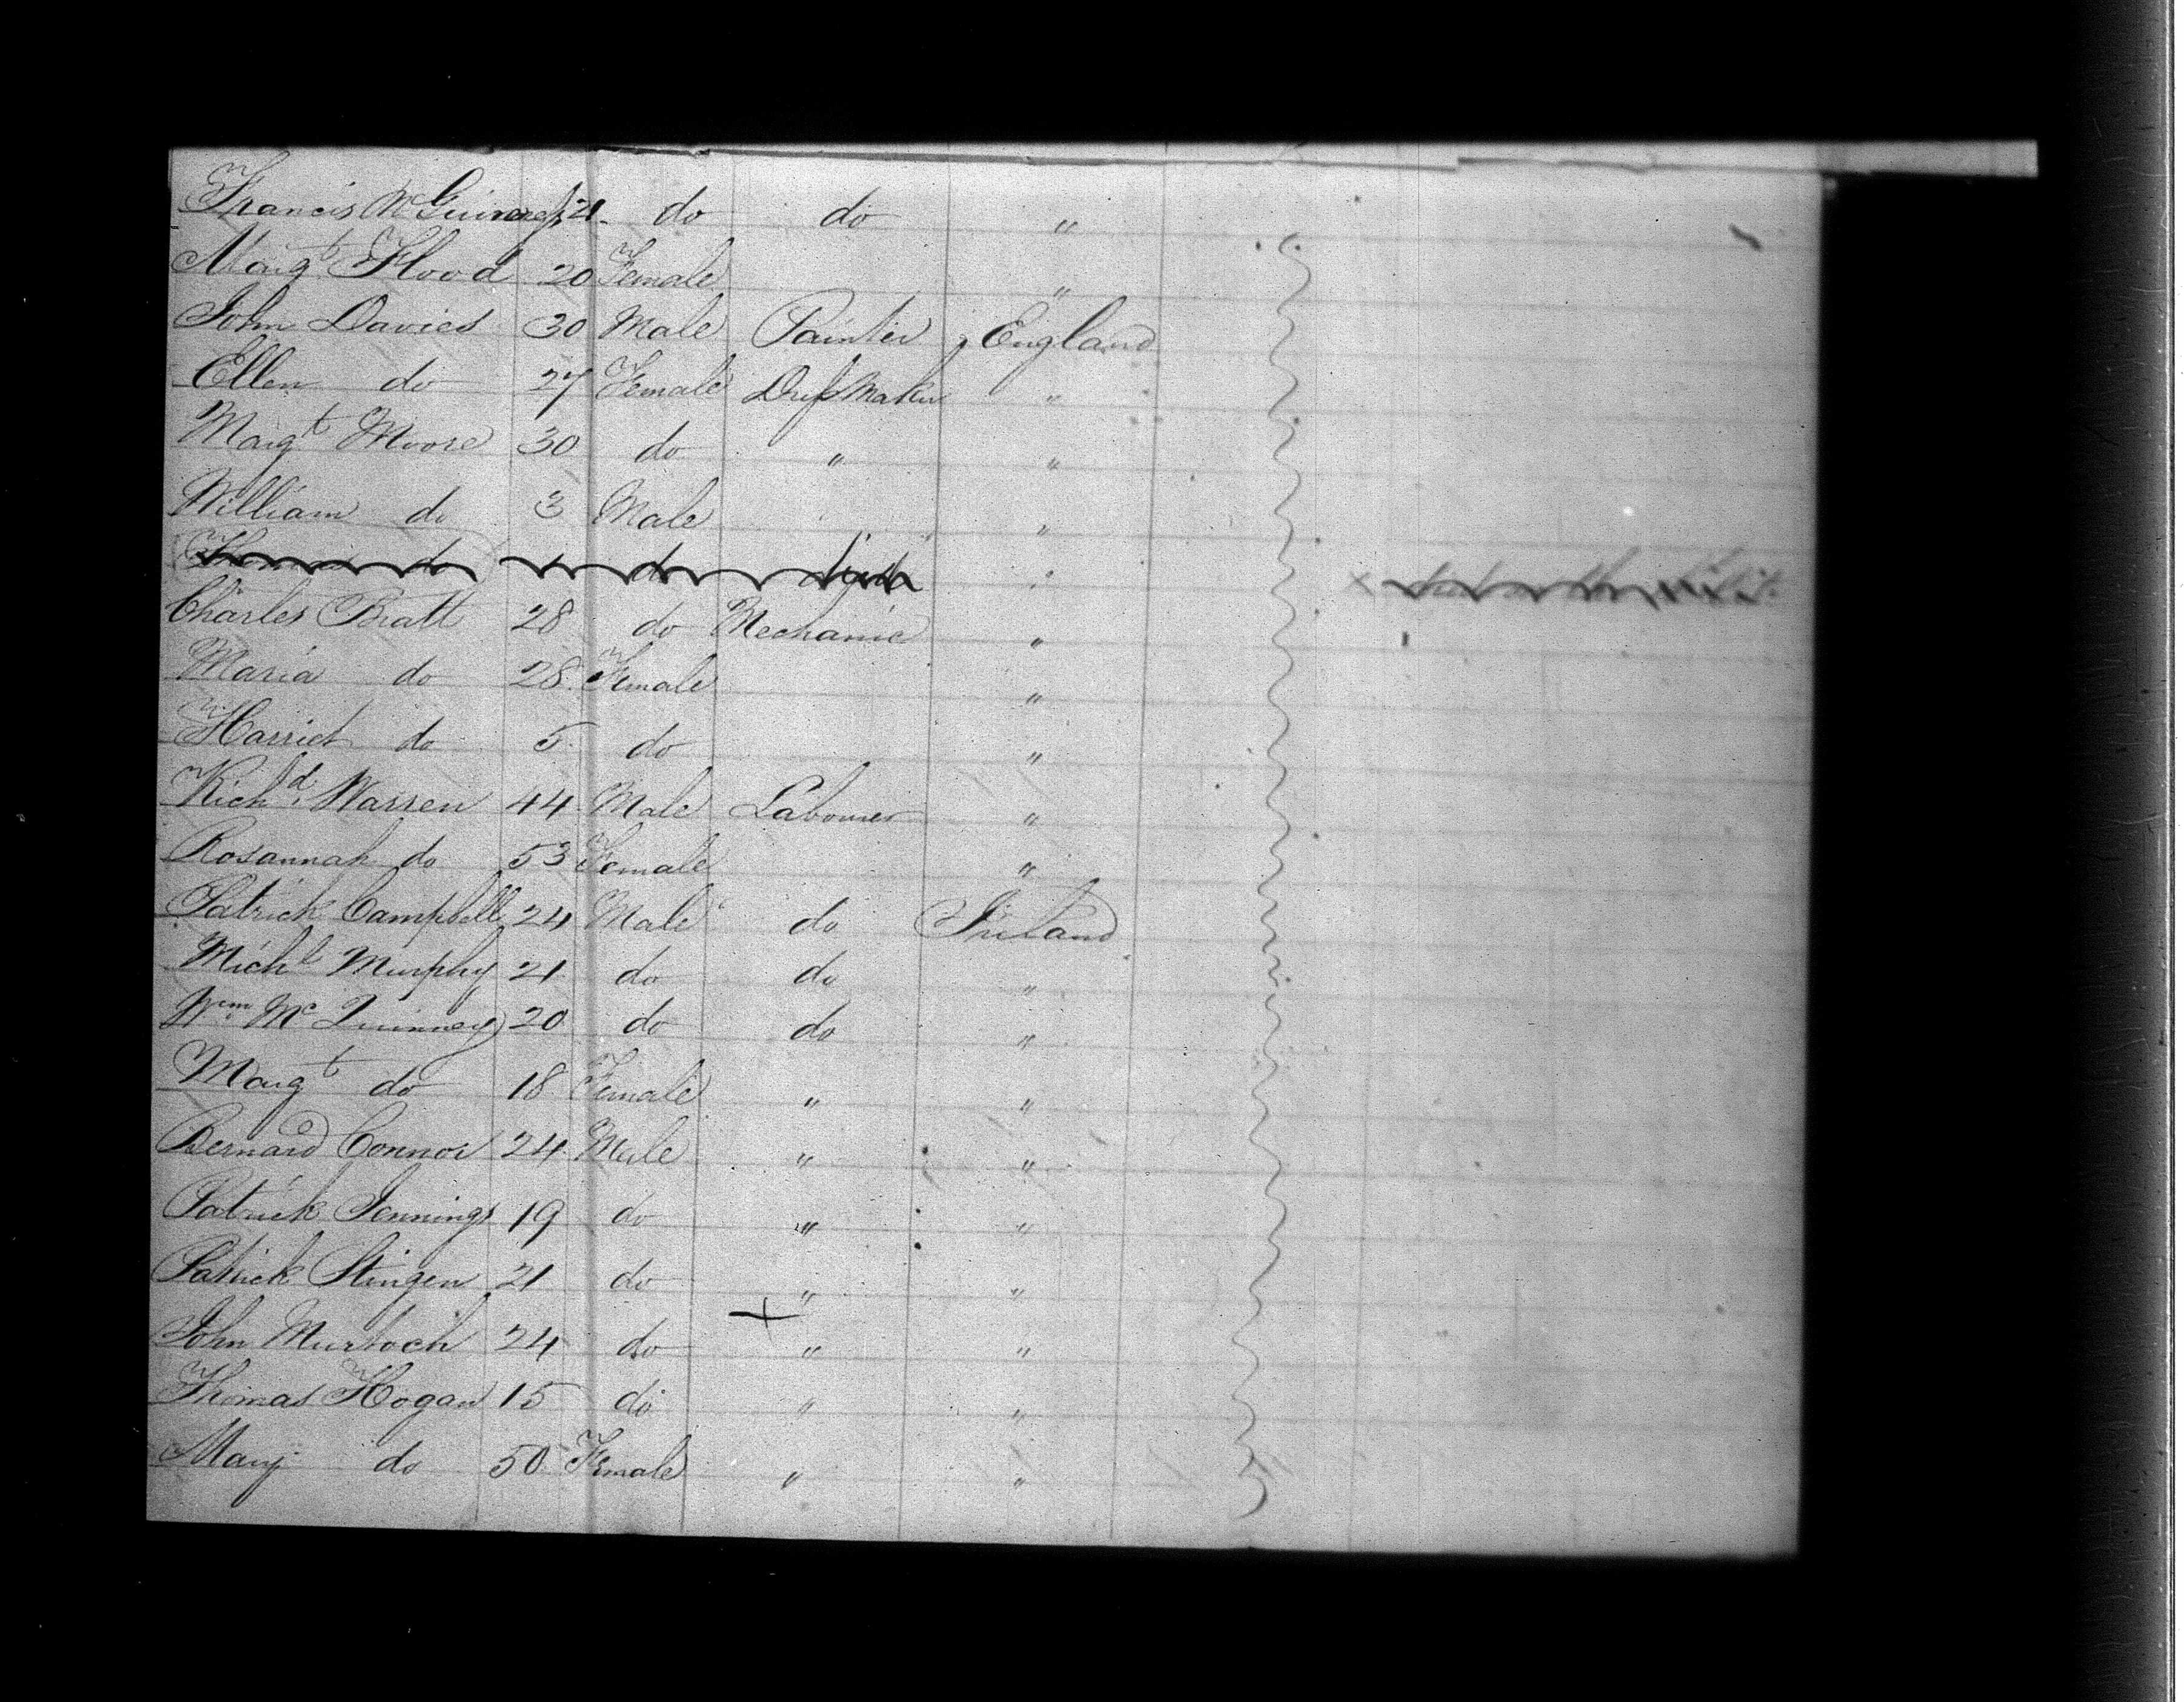 Francis McGuiness 21 do do "
Margt Flood 20 Female "
John Davies 30 Male Painter England
Ellen do 27 Female Dress Maker "
Margt Moore 30 do " "
William do 3 Male "
Thomas do do died "
Charles Bratt 28 do Mechanic "
Maria do 28 Female "
Harriet do 5 do "
Richd Warren 44 Male Labourer "
Rosannah do 53 Female "
Patrick Campbell 24 Male do Ireland
Michl Murphy 21 do do "
Wm Mc Quinney 20 do do "
Margt do 18 Female " "
Bernard Connor 24 Male " "
Patrick Jennings 19 do " "
Patrick Stingen 21 do " "
John Murtoch 24 do " "
Thomas Hogan 15 do " "
Mary do 50 Female " "